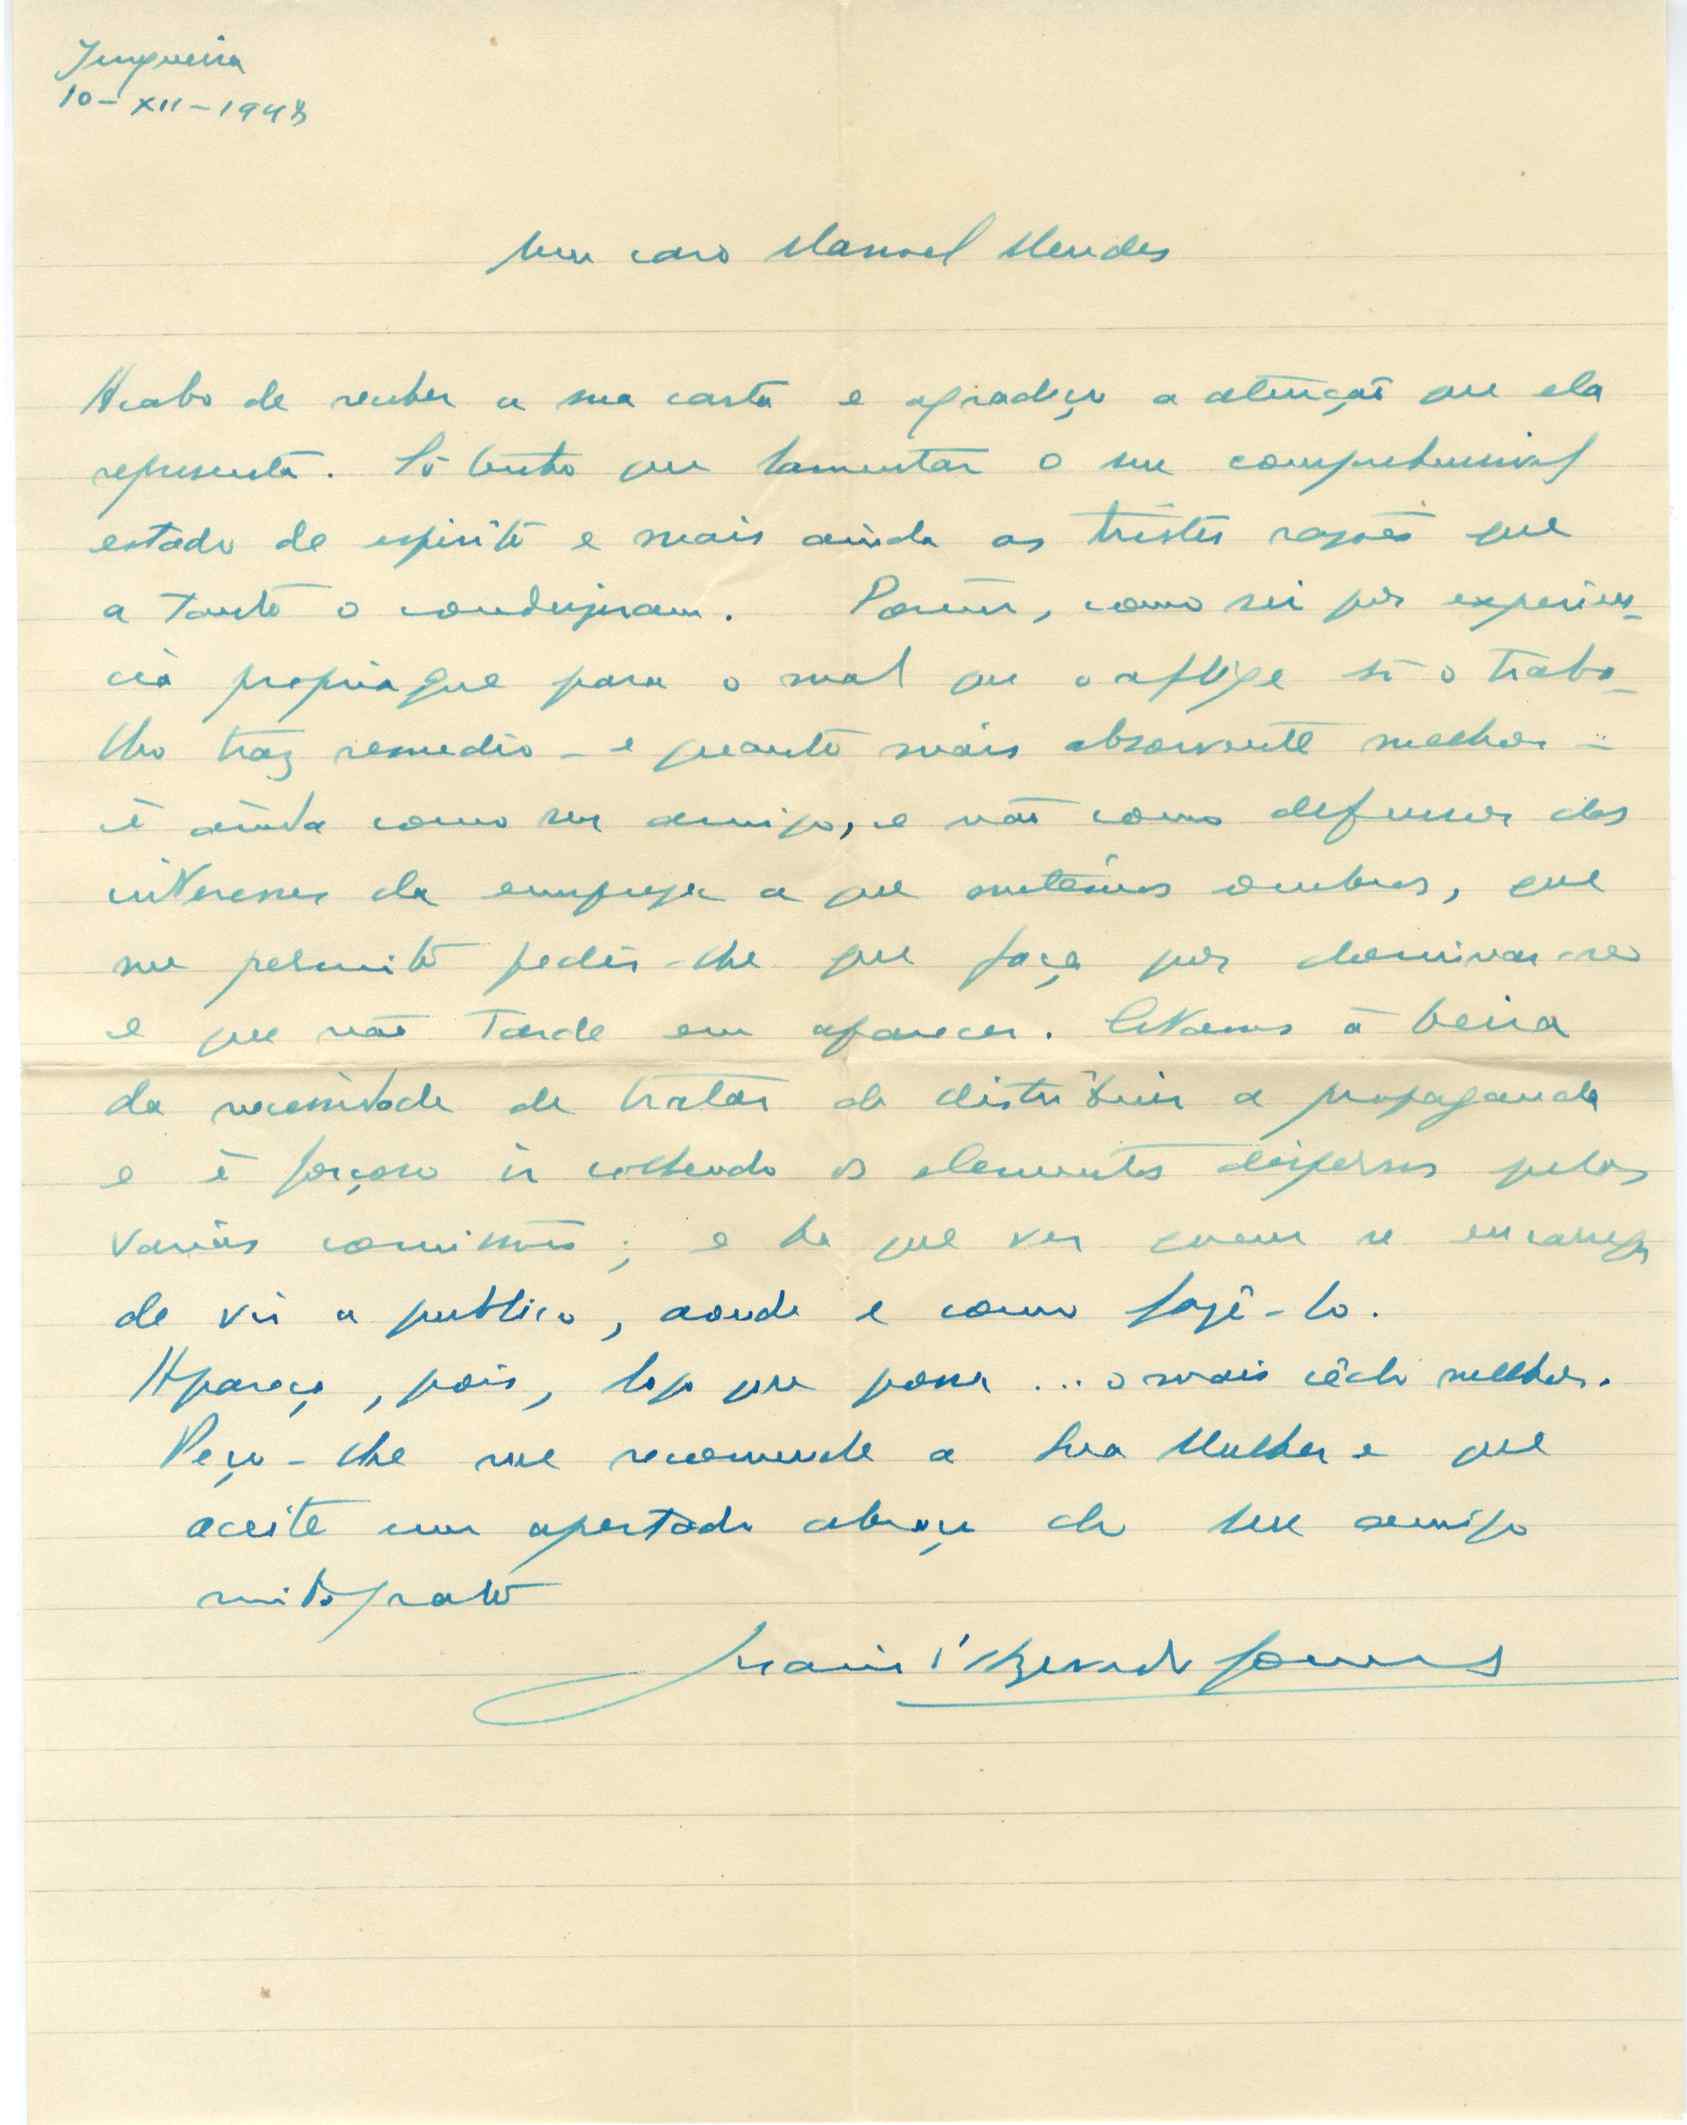 Junqueira
10-XII-1948
Meu caro Manoel Mendes
Acabo de receber a sua carta e agradeço a atenção que ela
representa. Só tenho que lamentar o seu comprehensivel
estado de espirito e mais ainda as tristes razões que
a tanto o conduziram. Porém, como sei por experien-
cia propria que para o mal que o aflige só o traba-
lho traz remedio - e quanto mais absorvente melhor -
é ainda como seu amigo, e não como defensor dos
interesses da empreza a que metemos ombros, que
me permito pedir-lhe que faça por dominar-se
e que não tarde em aparecer. Estamos à beira
da necessidade de tratar de distribuir a propaganda
e é forçoso ir colhendo os elementos dispersos pelas
varias comissões; e ha que ver quem se encarrega
de vir a publico, aonde e como fazê-lo.
Apareça, pois, logo que possa ... o mais cêdo melhor.
Peço-lhe me recomende a Sua Mulher e que
aceite um apertado abraço do seu amigo
mito grato
d'Azevedo Gomes